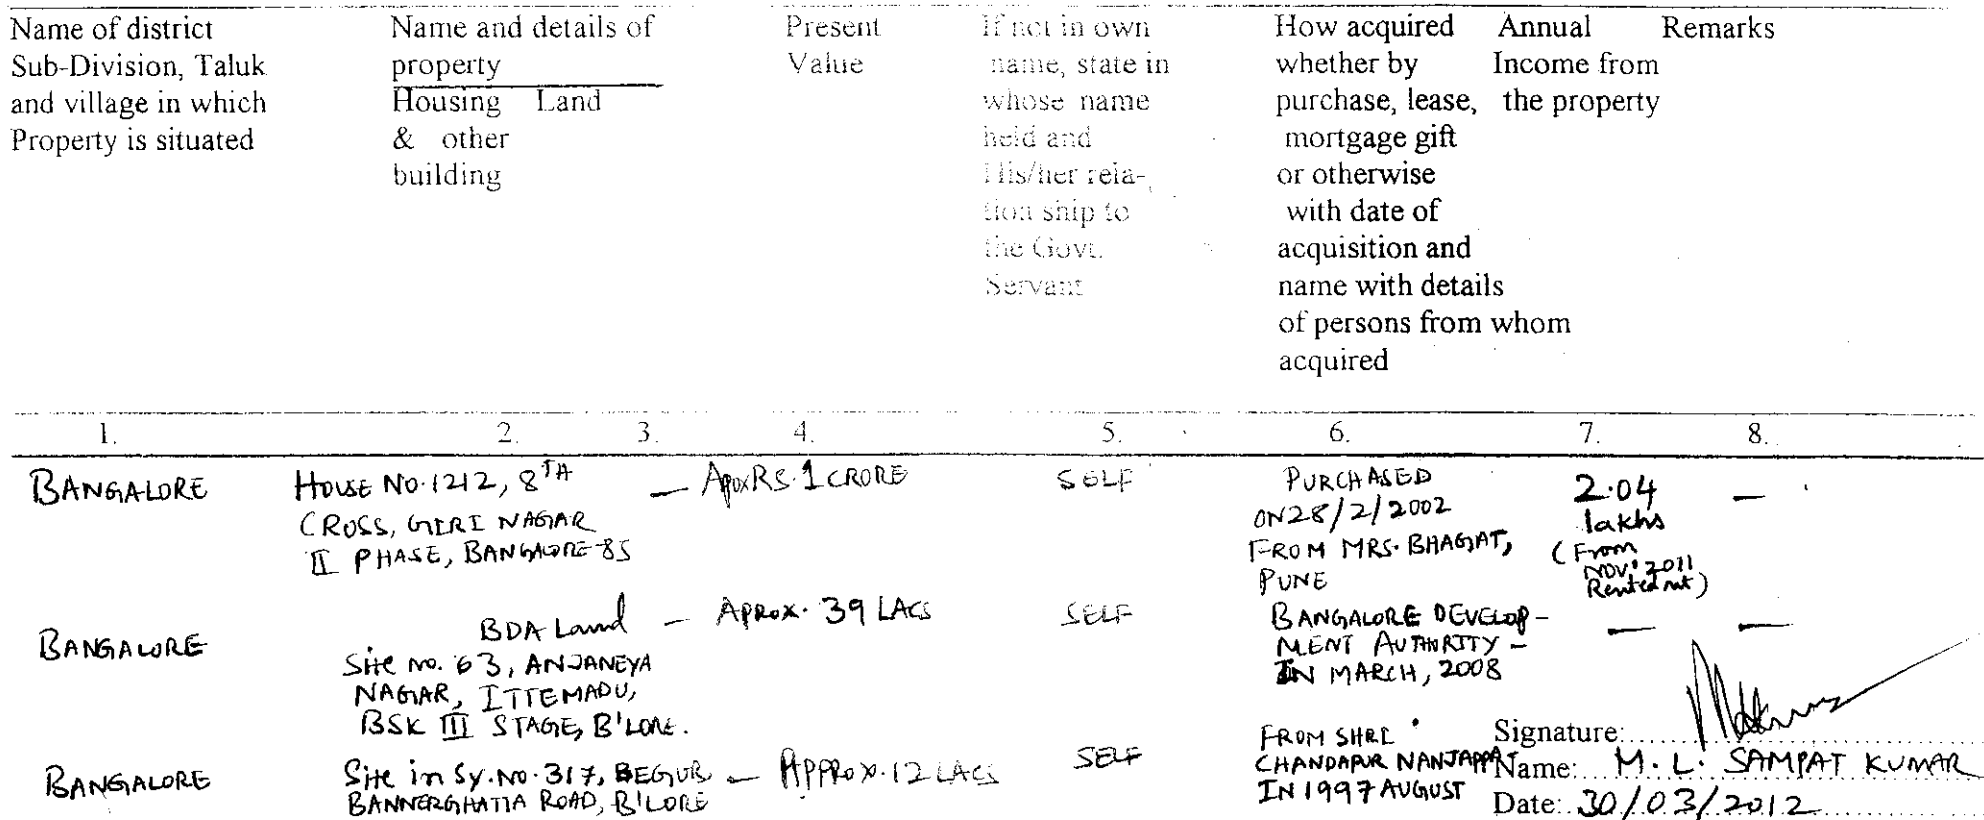 Name of district
Sub-Division, Taluk
and village in which
Property is situated
Name and details of
property
Housing Land
& other
building
Present
Value
If not in own
name, state in
whose name
held and
His/her rela-
tion ship to
the Govt.
Servant
How acquired
whether by
purchase, lease,
mortgage gift
or otherwise
with date of
acquisition and
name with details
of persons from whom
acquired
Annual
Income from
the property
Remarks
1. 2. 3. 4. 5. 6. 7. 8.
BANGALORE
HOUSE NO. 1212, 8TH
CROSS, GIRI NAGAR
II PHASE, BANGALORE-85
— ApoxRS. 1 CRORE
SELF
PURCHASED
ON 28/2/2002
FROM MRS. BHAGAT,
PUNE
2.04
lakhs
(From
NOV' 2011
Rented out)
—
BANGALORE
BDA Land — APROX. 39 LACS
Site no. 63, ANJANEYA
NAGAR, ITTEMADU,
BSK III STAGE, B'LORE.
SELF
BANGALORE DEVELOP-
MENT AUTHORITY -
IN MARCH, 2008
— —
BANGALORE
Site in Sy. No. 317, BEGUR — APPROX. 12 LACS
BANNERGHATTA ROAD, B'LORE
SELF
FROM SHRI
CHANDAPUR NANJAPPA
IN 1997 AUGUST
Signature:
Name: M. L. SAMPAT KUMAR
Date: 30/03/2012